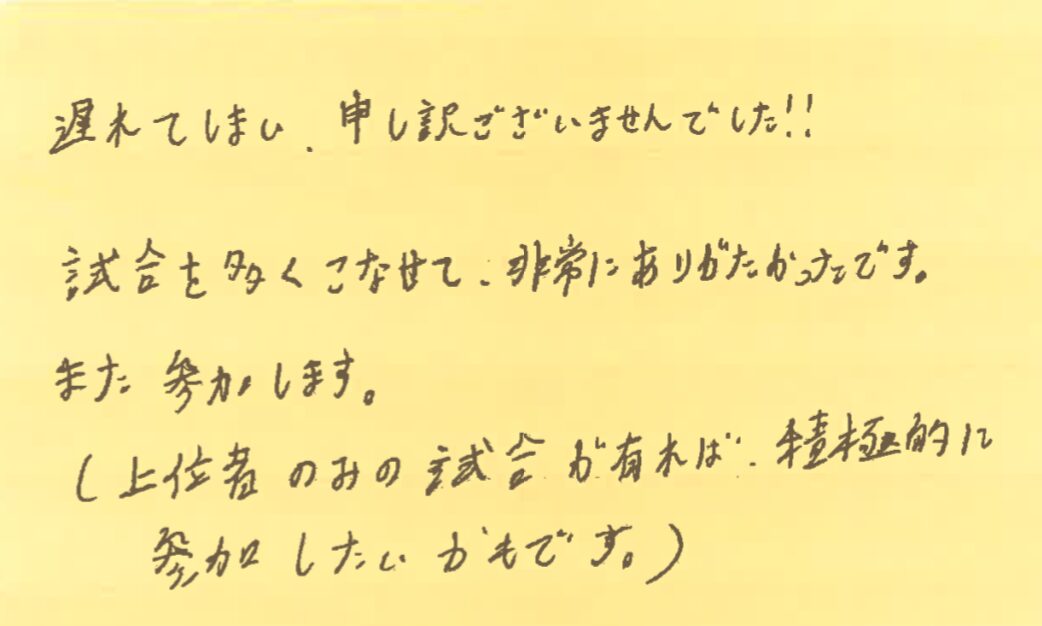 遅れてしまい、申し訳ございませんでした!!
試合を多くこなせて、非常にありがたかったです。
また参加します。
(上位者のみの試合が有れば、積極的に
参加したいかもです。)